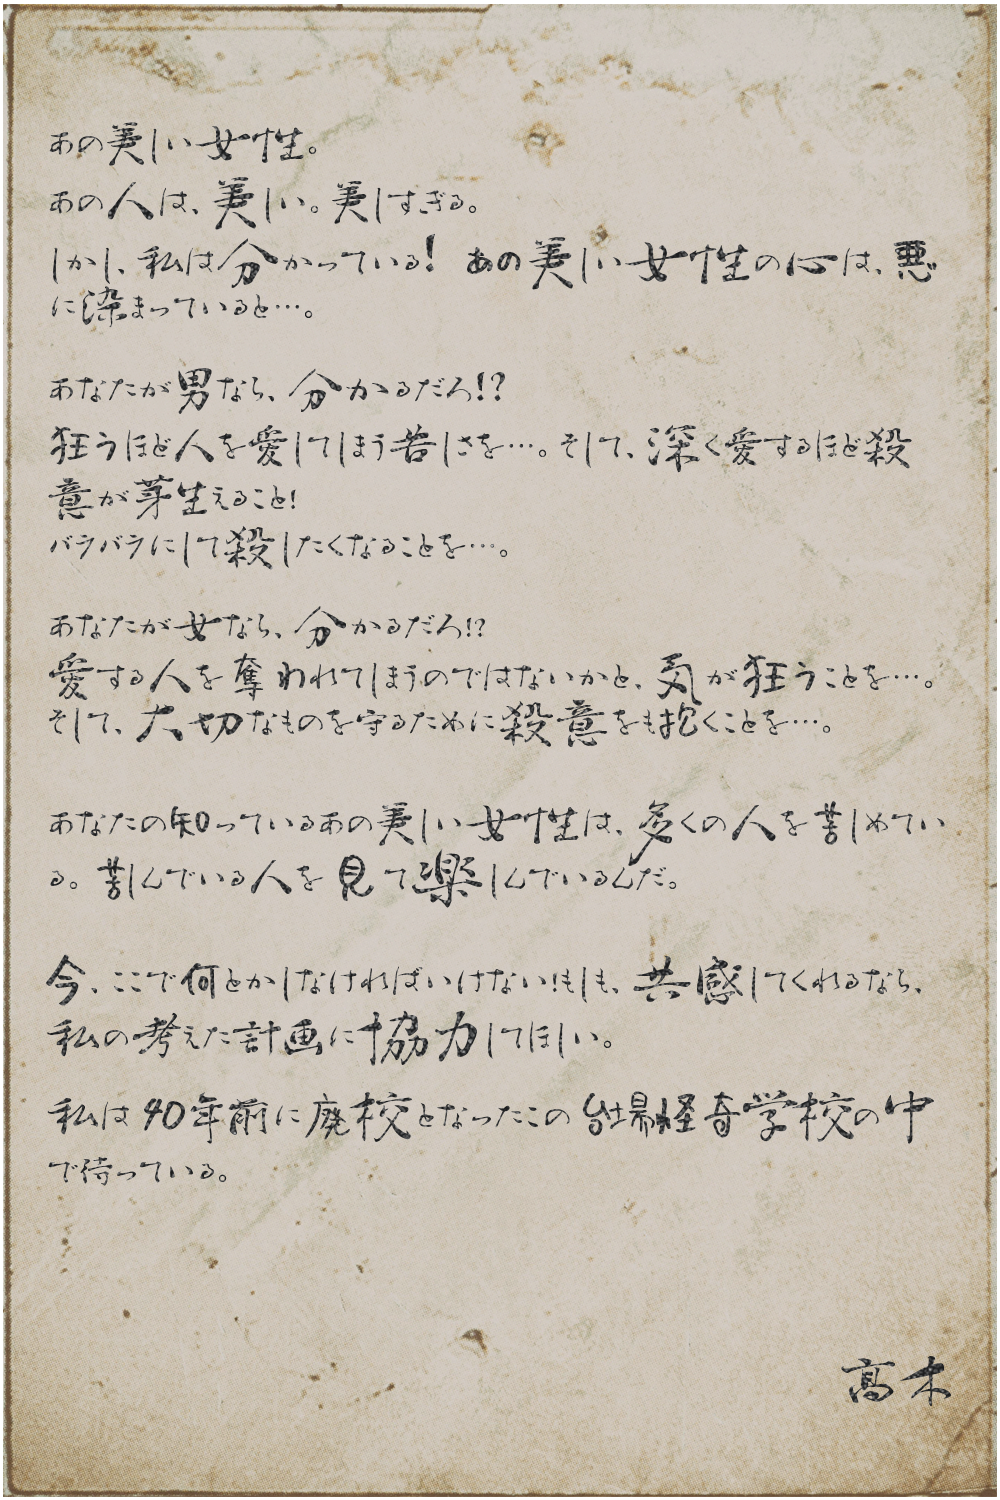 あの美しい女性。
あの人は、美しい。美しすぎる。
しかし、私は分かっている! あの美しい女性の心は、悪
に染まっていると…。
あなたが男なら、分かるだろ!?
狂うほど人を愛してしまう苦しさを…。そして、深く愛するほど殺
意が芽生えること!
バラバラにして殺したくなることを…。
あなたが女なら、分かるだろ!?
愛する人を奪われてしまうのではないかと、気が狂うことを…。
そして、大切なものを守るために殺意をも抱くことを…。
あなたの知っているあの美しい女性は、多くの人を苦しめてい
る。苦しんでいる人を見て楽しんでいるんだ。
今、ここで何とかしなければいけない!もしも、共感してくれるなら、
私の考えた計画に協力してほしい。
私は40年前に廃校となったこの台場怪奇学校の中
で待っている。
高木